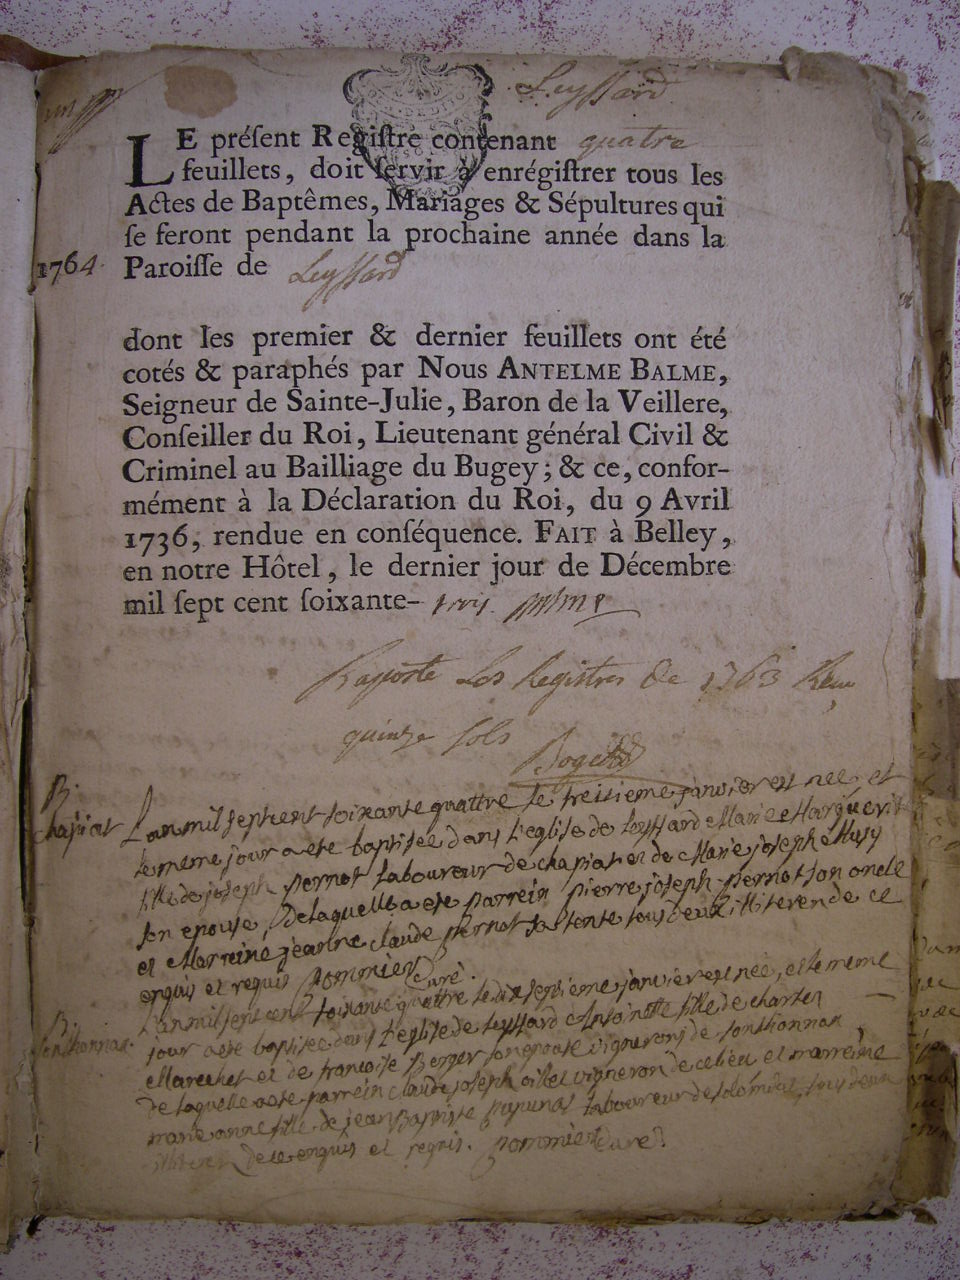 Leyssard
LE préſent Regiſtre contenant quatre
feuillets, doit ſervir à enrégiſtrer tous les
Actes de Baptêmes, Mariages & Sépultures qui
ſe feront pendant la prochaine année dans la
1764. Paroiſſe de Leyssard
dont les premier & dernier feuillets ont été
cotés & paraphés par NOUS ANTELME BALME,
Seigneur de Sainte-Julie, Baron de la Veillere,
Conſeiller du Roi, Lieutenant général Civil &
Criminel au Bailliage du Bugey; & ce, confor-
mément à la Déclaration du Roi, du 9 Avril
1736, rendue en conſéquence. FAIT à Belley,
en notre Hôtel, le dernier jour de Décembre
mil ſept cent ſoixante- trois
Raporté Les Registres de 1763
quinze sols
B.
chapiat L'an mil sept cent soixante quattre le treisieme janvier est nee, et
le meme jour a ete baptisee dans l'eglise de leyssard Marie Marguerite
fille de joseph pernot laboureur de chapiat et de Marie joseph
son epouse, De laquelle a ete parrein pierre joseph pernot son oncle
et Marreine jeanne claude pernot sa tente tous deux de ce
enquis et requis pommier Curé.
B. L'an mil sept cent soixante quattre le dix septieme janvier est nee, et le meme
jour a ete baptisee dans l'eglise de leyssard Antoinette fille de charles
Marechet et de francoise Berger son epouse vignerons de
De laquelle a ete parrein claude joseph vigneron de ce lieu et marreine
marie anne fille de jean Baptiste laboureur de tous deux
de ce enquis et requis. pommier Curé.